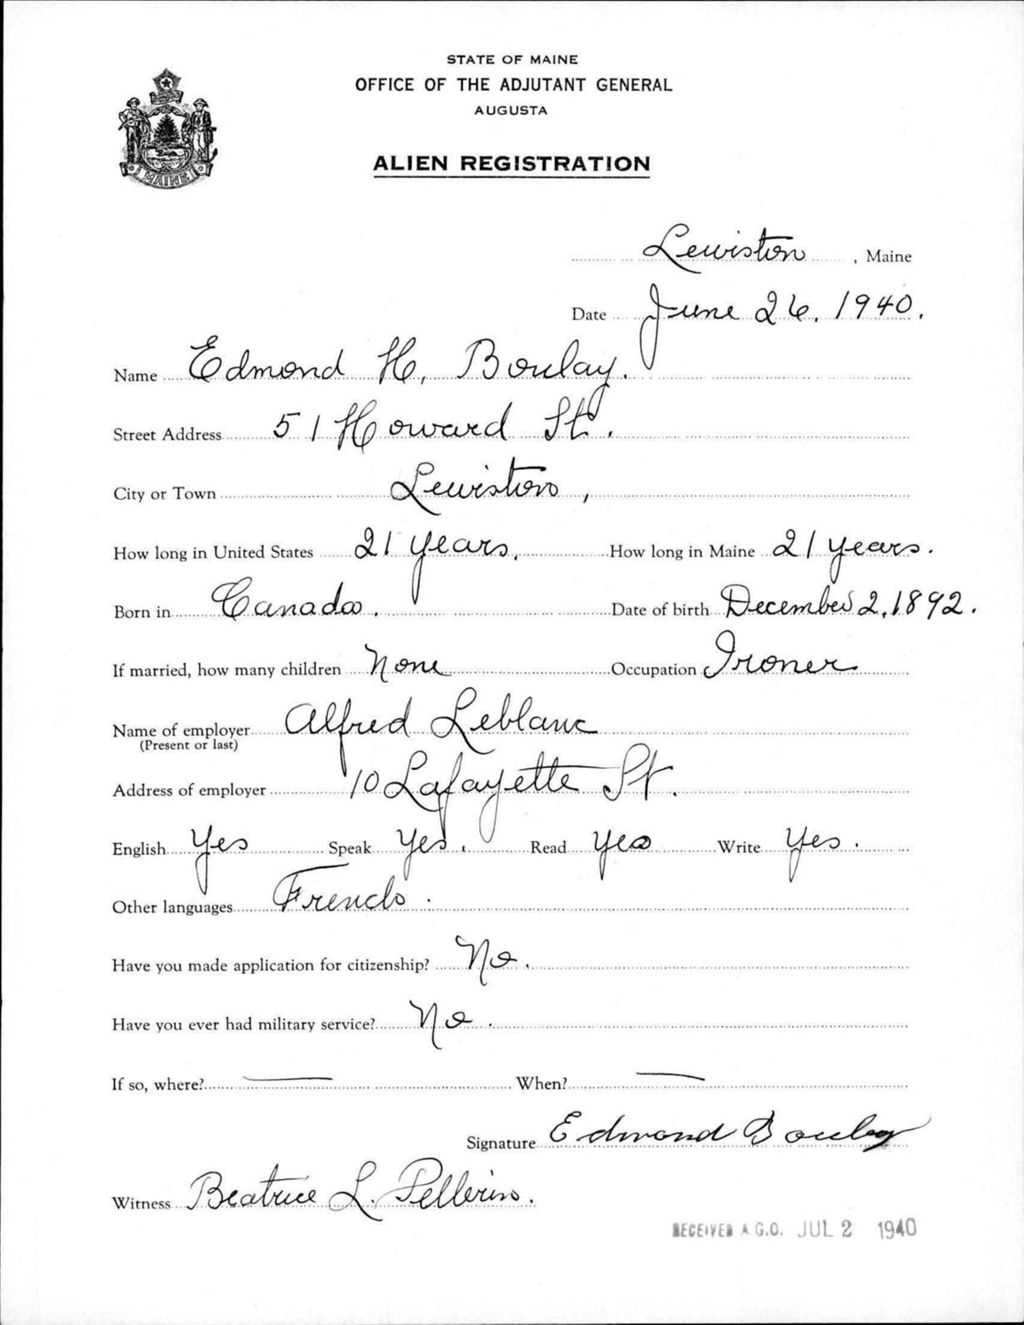 STATE OF MAINE
OFFICE OF THE ADJUTANT GENERAL
AUGUSTA
MAINE
ALIEN REGISTRATION
Lewiston, Maine
Date June 26, 1940.
Name Edmond H. Boulay.
Street Address 51 Howard St.
City or Town Lewiston,
How long in United States 21 years. How long in Maine 21 years.
Born in Canada. Date of birth December 2, 1892.
If married, how many children None Occupation Ironer
Name of employer Alfred Leblanc
(Present or last)
Address of employer 10 Lafayette St.
English Yes Speak Yes. Read Yes Write Yes.
Other languages French.
Have you made application for citizenship? No.
Have you ever had military service? No.
If so, where? — When? —
Signature Edmond Boulay
Witness Beatrice L. Pellerin.
RECEIVED A.G.O. JUL 2 1940